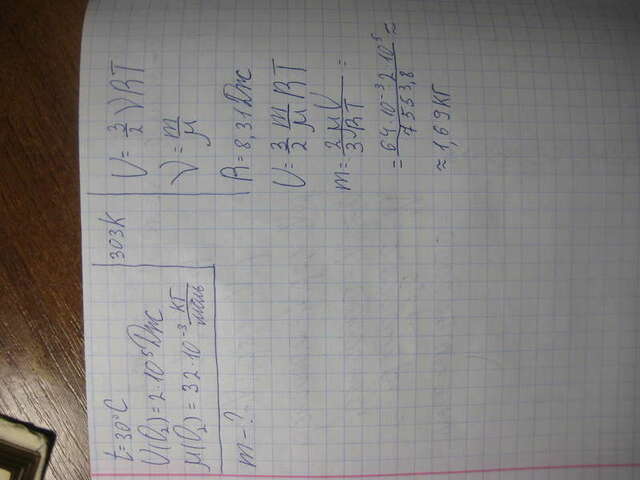 t=30°C
U(O₂)=2·10⁵Дж
μ(O₂)=32·10⁻³ кг/моль
m-?
303К
U=3/2 νRT
ν=m/μ
R=8,31Дж
U=3/2 m/μ RT
m=2μU/3RT=
=64·10⁻³·2·10⁵/7553,8≈
≈1,69кг